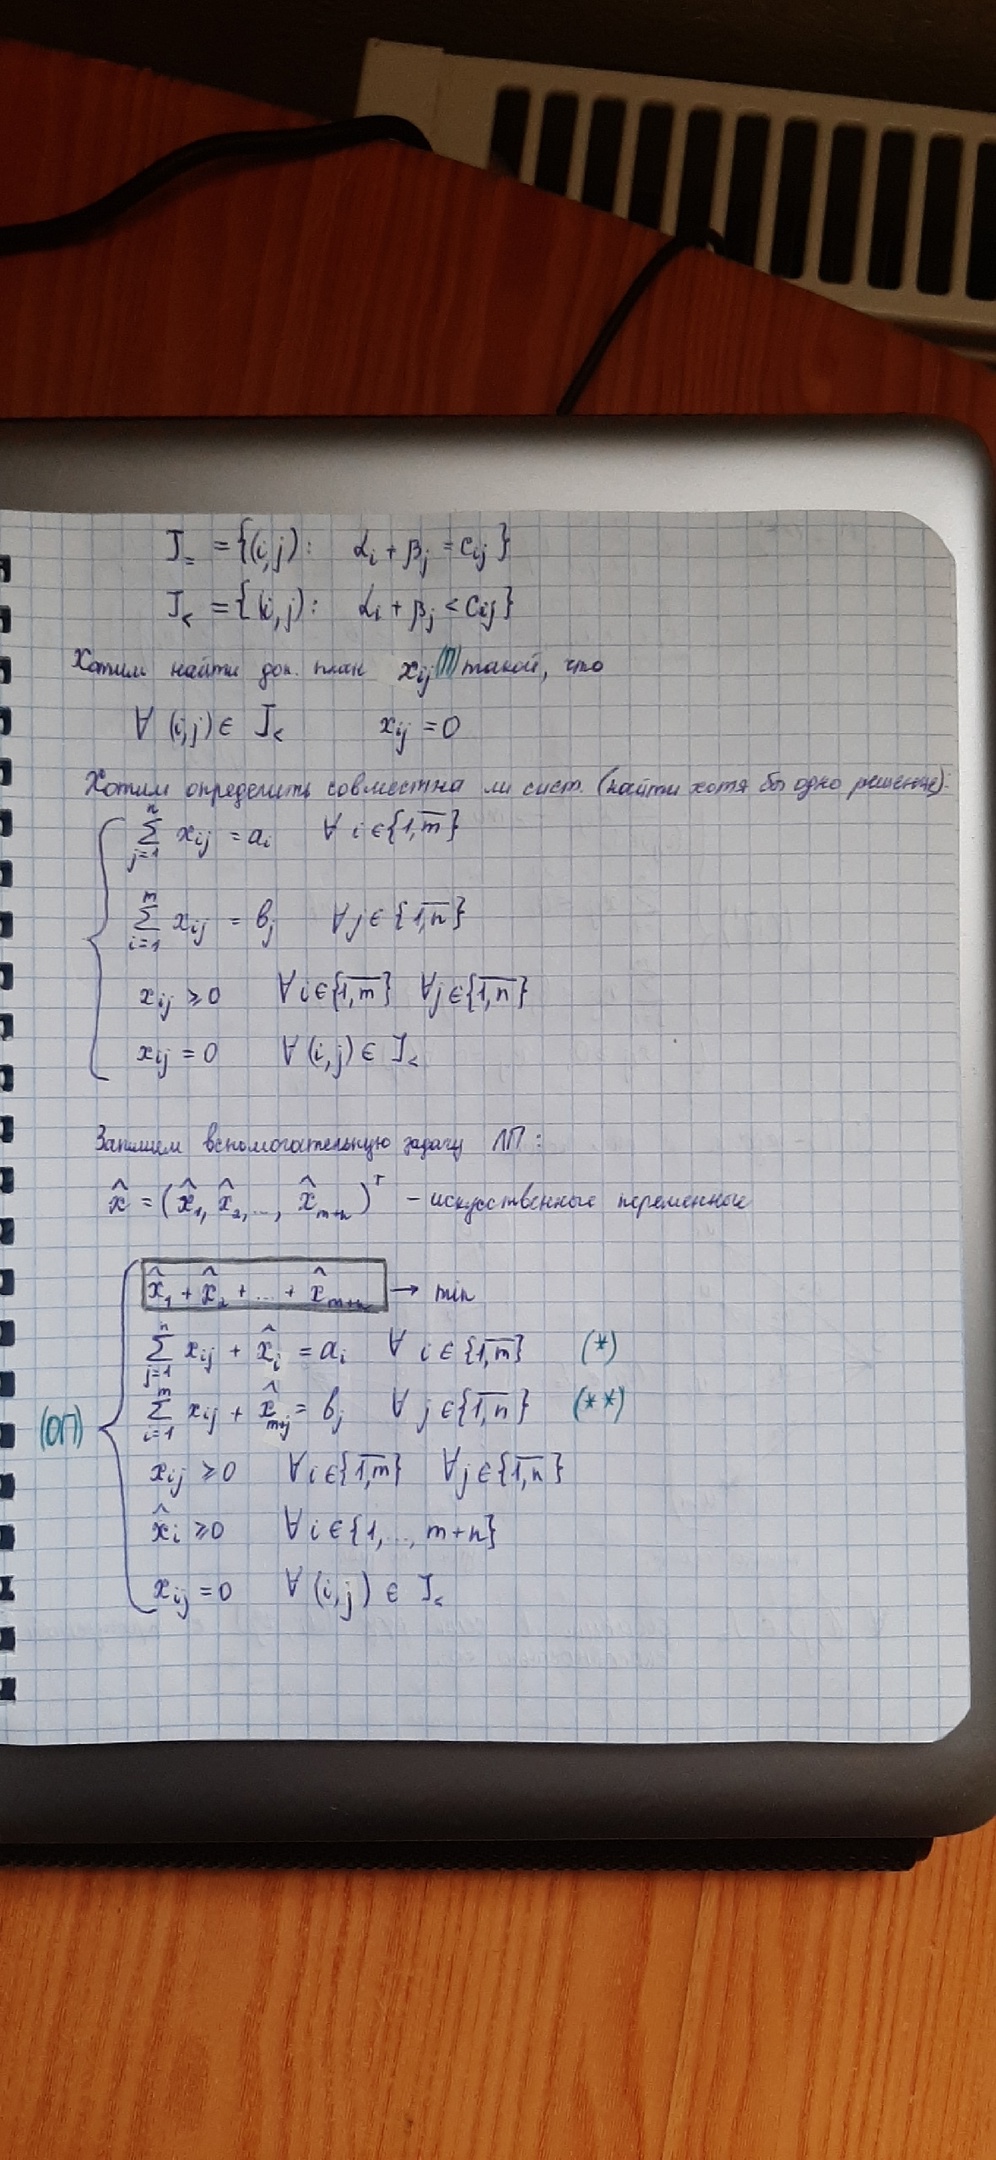 J₌ = {(i,j): αᵢ + βⱼ = cᵢⱼ}
J_< = {(i,j): αᵢ + βⱼ < cᵢⱼ}
Хотим найти доп. план xᵢⱼ (П) такой, что
∀ (i,j) ∈ J_< xᵢⱼ = 0
Хотим определить совместна ли сист. (найти хотя бы одно решение):
∑_{j=1}^{n} xᵢⱼ = aᵢ ∀ i ∈ {1,m̅}
∑_{i=1}^{m} xᵢⱼ = bⱼ ∀ j ∈ {1,n̅}
xᵢⱼ ≥ 0 ∀ i ∈ {1,m̅} ∀ j ∈ {1,n̅}
xᵢⱼ = 0 ∀ (i,j) ∈ J_<
Запишем вспомогательную задачу ЛП:
x̂ = (x̂₁, x̂₂, ..., x̂_{m+n})ᵀ – искусственные переменные
x̂₁ + x̂₂ + ... + x̂_{m+n} → min
∑_{j=1}^{n} xᵢⱼ + x̂ᵢ = aᵢ ∀ i ∈ {1,m̅} (*)
∑_{i=1}^{m} xᵢⱼ + x̂_{m+j} = bⱼ ∀ j ∈ {1,n̅} (**)
(ОП)
xᵢⱼ ≥ 0 ∀ i ∈ {1,m̅} ∀ j ∈ {1,n̅}
x̂ᵢ ≥ 0 ∀ i ∈ {1, ..., m+n}
xᵢⱼ = 0 ∀ (i,j) ∈ J_<